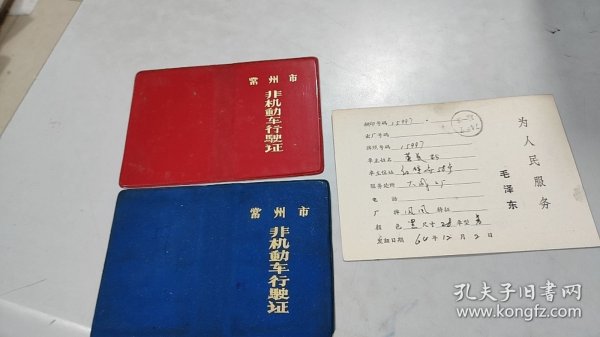 常州市
非机動车行驶证
常州市
非机動车行驶证
为人民服务
毛泽东
钢印号码 15997
出厂号码
牌照号码 15997
车主姓名
车主住址
服务处所
电话
厂牌 凤凰 牌证
颜色 黑 尺寸 28 车型 男
发证日期 64年12月2日
孔夫子旧书网
www.kongfz.com